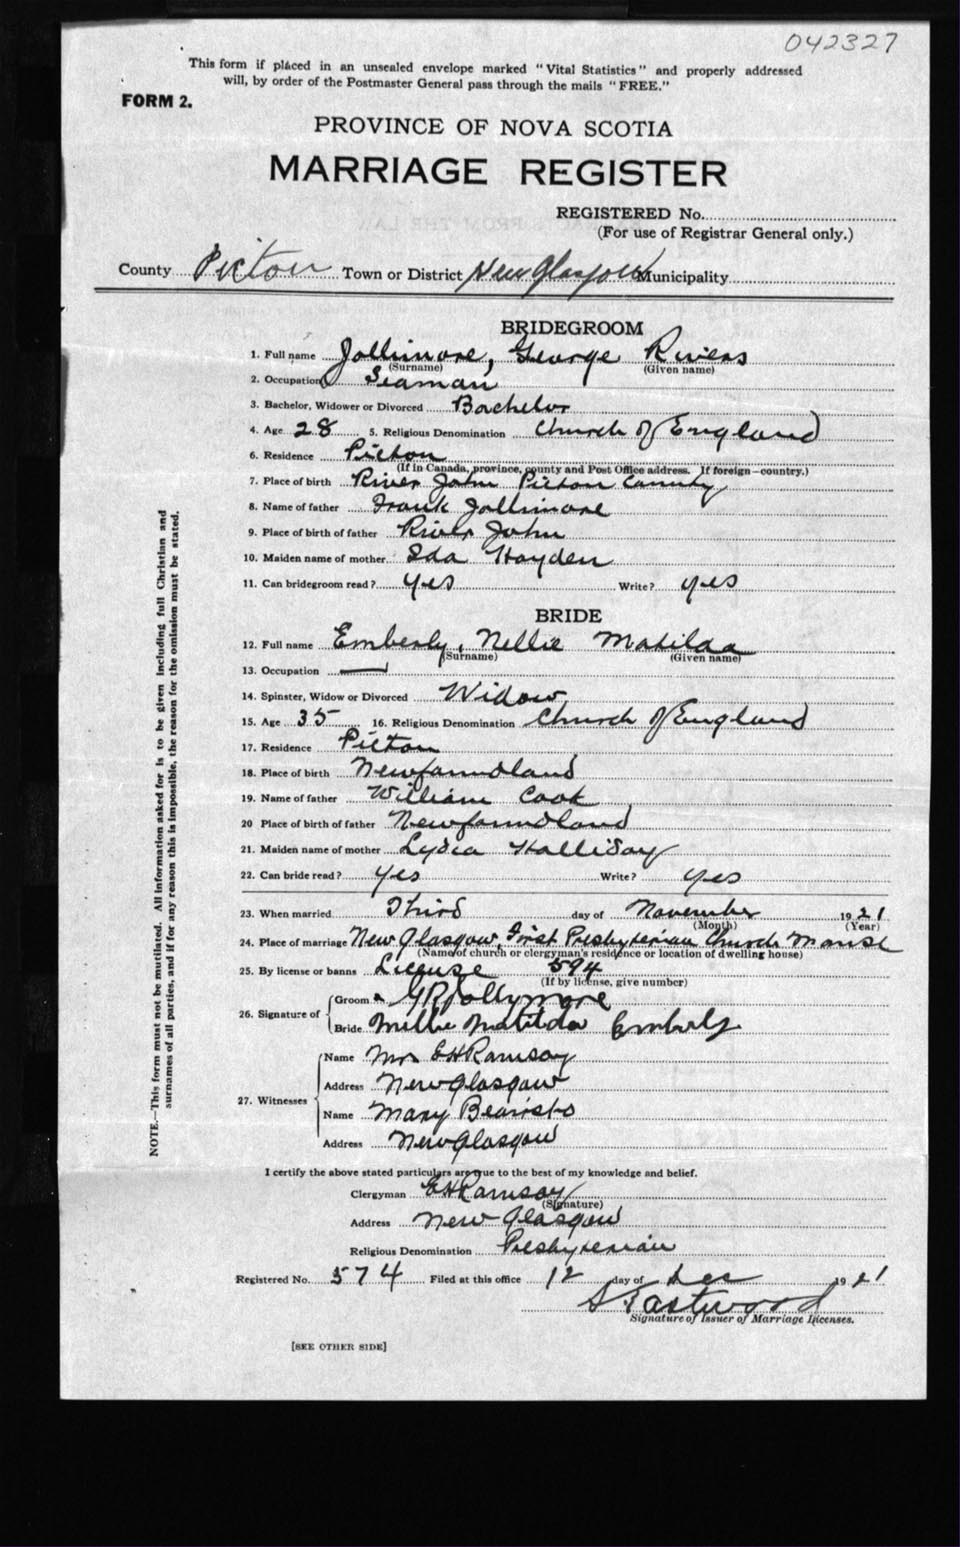 042327
This form if placed in an unsealed envelope marked "Vital Statistics" and properly addressed
will, by order of the Postmaster General pass through the mails "FREE."
FORM 2.
PROVINCE OF NOVA SCOTIA
MARRIAGE REGISTER
REGISTERED No.
(For use of Registrar General only.)
County Pictou Town or District New Glasgow Municipality
BRIDEGROOM
1. Full name Jollimore, George Rivers
(Surname) (Given name)
2. Occupation Seaman
3. Bachelor, Widower or Divorced Bachelor
4. Age 28 5. Religious Denomination Church of England
6. Residence Pictou
(If in Canada, province, county and Post Office address. If foreign—country.)
7. Place of birth River John Pictou County
8. Name of father Frank Jollimore
9. Place of birth of father River John
10. Maiden name of mother Ida Hayden
11. Can bridegroom read? yes Write? yes
BRIDE
12. Full name Emberly, Nellie Matilda
(Surname) (Given name)
13. Occupation —
14. Spinster, Widow or Divorced Widow
15. Age 35 16. Religious Denomination Church of England
17. Residence Pictou
18. Place of birth Newfoundland
19. Name of father William Cook
20 Place of birth of father Newfoundland
21. Maiden name of mother Lydia Halliday
22. Can bride read? yes Write? yes
23. When married Third day of November 1921
(Month) (Year)
24. Place of marriage New Glasgow, First Presbyterian Church Manse
(Name of church or clergyman's residence or location of dwelling house)
25. By license or banns License 594
(If by license, give number)
26. Signature of Groom G R Jollymore
Bride Millie Matilda Emberly
27. Witnesses Name Mrs E H Ramsay
Address New Glasgow
Name Mary Bearisto
Address New Glasgow
I certify the above stated particulars are true to the best of my knowledge and belief.
Clergyman E H Ramsay
(Signature)
Address New Glasgow
Religious Denomination Presbyterian
Registered No. 574 Filed at this office 12 day of Dec 1921
S Eastwood
Signature of Issuer of Marriage Licenses.
[SEE OTHER SIDE]
NOTE.—This form must not be mutilated. All information asked for is to be given including full Christian and
surnames of all parties, and if for any reason this is impossible, the reason for the omission must be stated.